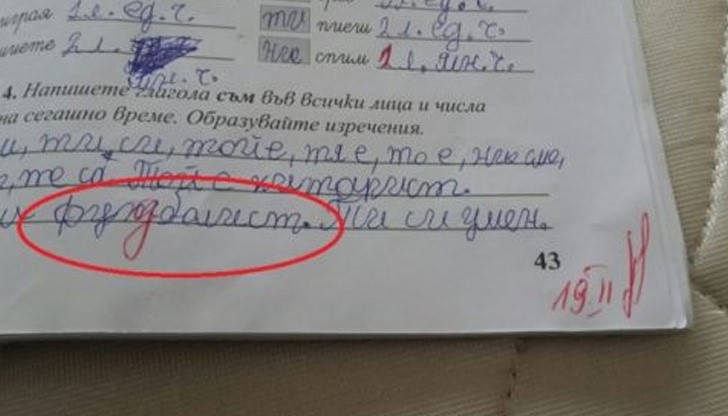 играя 1 л. ед. ч. ти пиеш 2 л. ед. ч.
шиете 2 л. ние спим 1 л. мн. ч.
мн. ч.
4. Напишете глагола съм във всички лица и числа
на сегашно време. Образувайте изречения.
ти си, той е, тя е, то е, ние сме,
те са. Той е китарист.
футдбалист. Ти си умен.
43
19.II